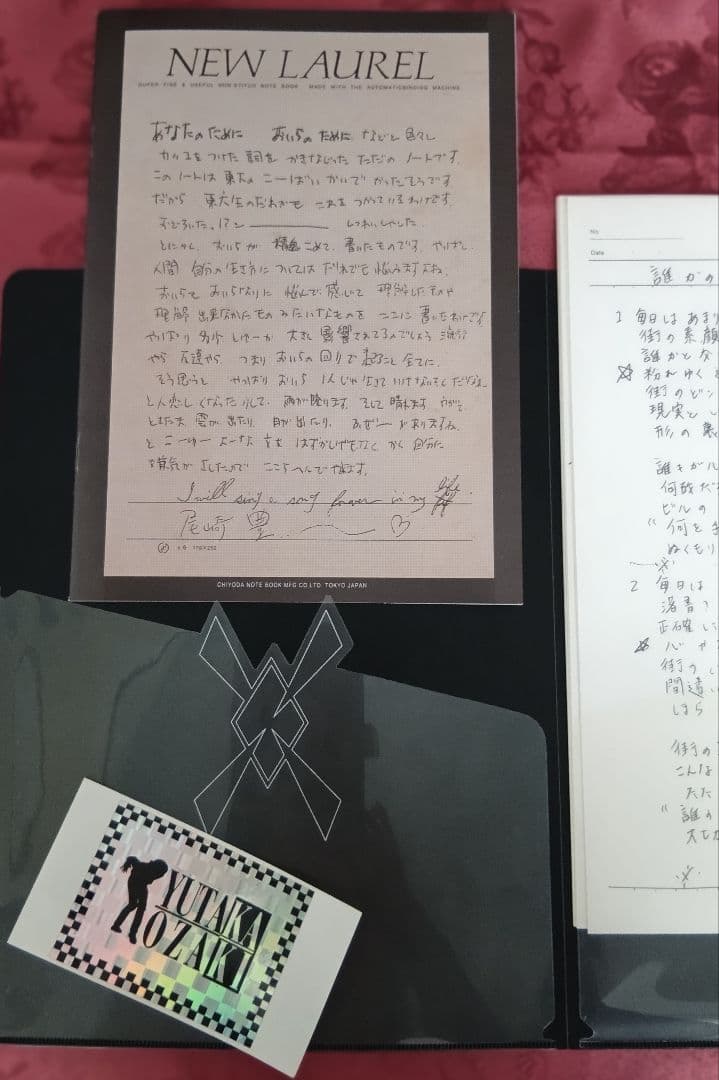 NEW LAUREL
SUPER FINE & USEFUL NON-STITCH NOTE BOOK MADE WITH THE AUTOMATIC BINDING MACHINE
あなたのために おいらのために などと色々
カッコをつけた詞を かきなじった ただの ノートです。
このノートは東大の こーばい かいで かったそうです
だから 東大生のだれかも これを つかっているわけです。
おどろいた。
とにかく、おいらが 精魂こめて、書いたものです。やっぱし
人間 自分の生き方については だれでも悩みますよね。
おいらも おいらなりに 悩んで、感じて 理解したものや
理解 出来なかったもの みたいなものを ここに 書いたわけです
やっぱり 多少 しゅーか 大きく 影響されてるのでしょう 流行
やら 友達やら つまり おいらの回りで 起ること 全てに。
そう思うと やっぱり おいら 1人じゃ生きて いけないそく だなぁ
と人恋しくなったりして、雨が降ります。そして 晴れます。
ときたま 雲が出たり、月が出たり、
と こーゆー よーな 文を はずかしげもなく かく自分に
ここらへんで やめます。
I will sing a song forever in my life
尾崎 豊
CHIYODA NOTE BOOK MFG CO. LTD. TOKYO JAPAN
YUTAKA
OZAKI
No.
Date
誰かの
1 毎日はあまり
街の素顔
誰かとな
☆ 紛れゆく
街のどン
現実とし
形の裏
誰もがル
何故だ
ビルの
"何をき
ぬくもり
2 毎日は
落書き
正確し
☆ 心や
街の
間違い
しまら
街の
こんな
ただ
"誰か